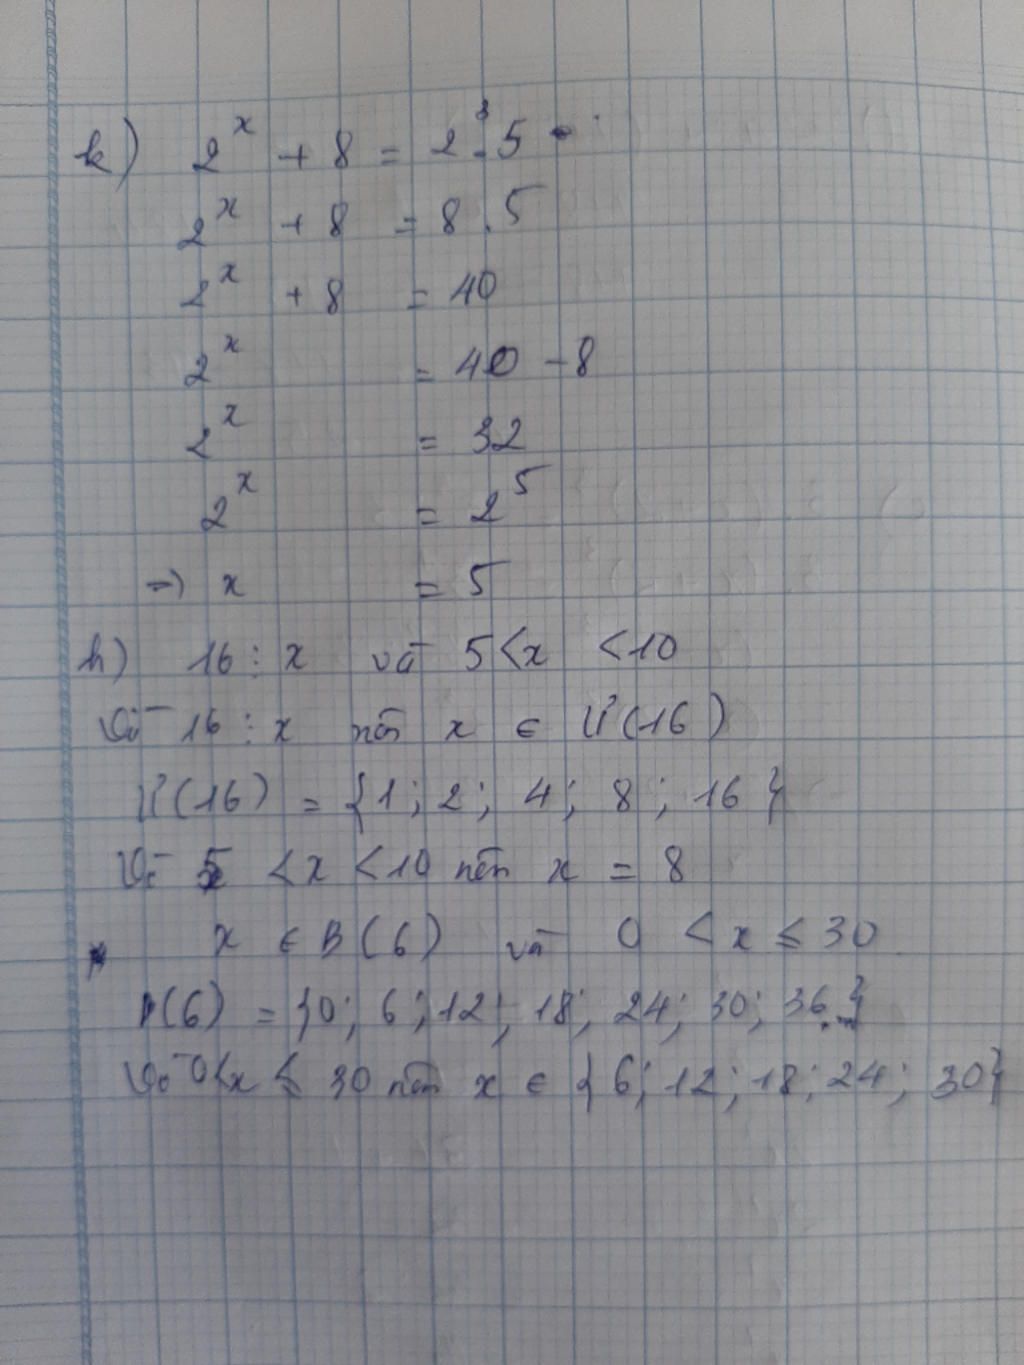 k) 2ˣ + 8 = 2³.5
2ˣ + 8 = 8.5
2ˣ + 8 = 40
2ˣ = 40 - 8
2ˣ = 32
2ˣ = 2⁵
=> x = 5
h) 16 ⋮ x và 5 < x < 10
Vì 16 ⋮ x nên x ∈ Ư(16)
Ư(16) = {1; 2; 4; 8; 16}
Vì 5 < x < 10 nên x = 8
* x ∈ B(6) và 0 < x ≤ 30
B(6) = {0; 6; 12; 18; 24; 30; 36..}
Vì 0 < x ≤ 30 nên x ∈ {6; 12; 18; 24; 30}